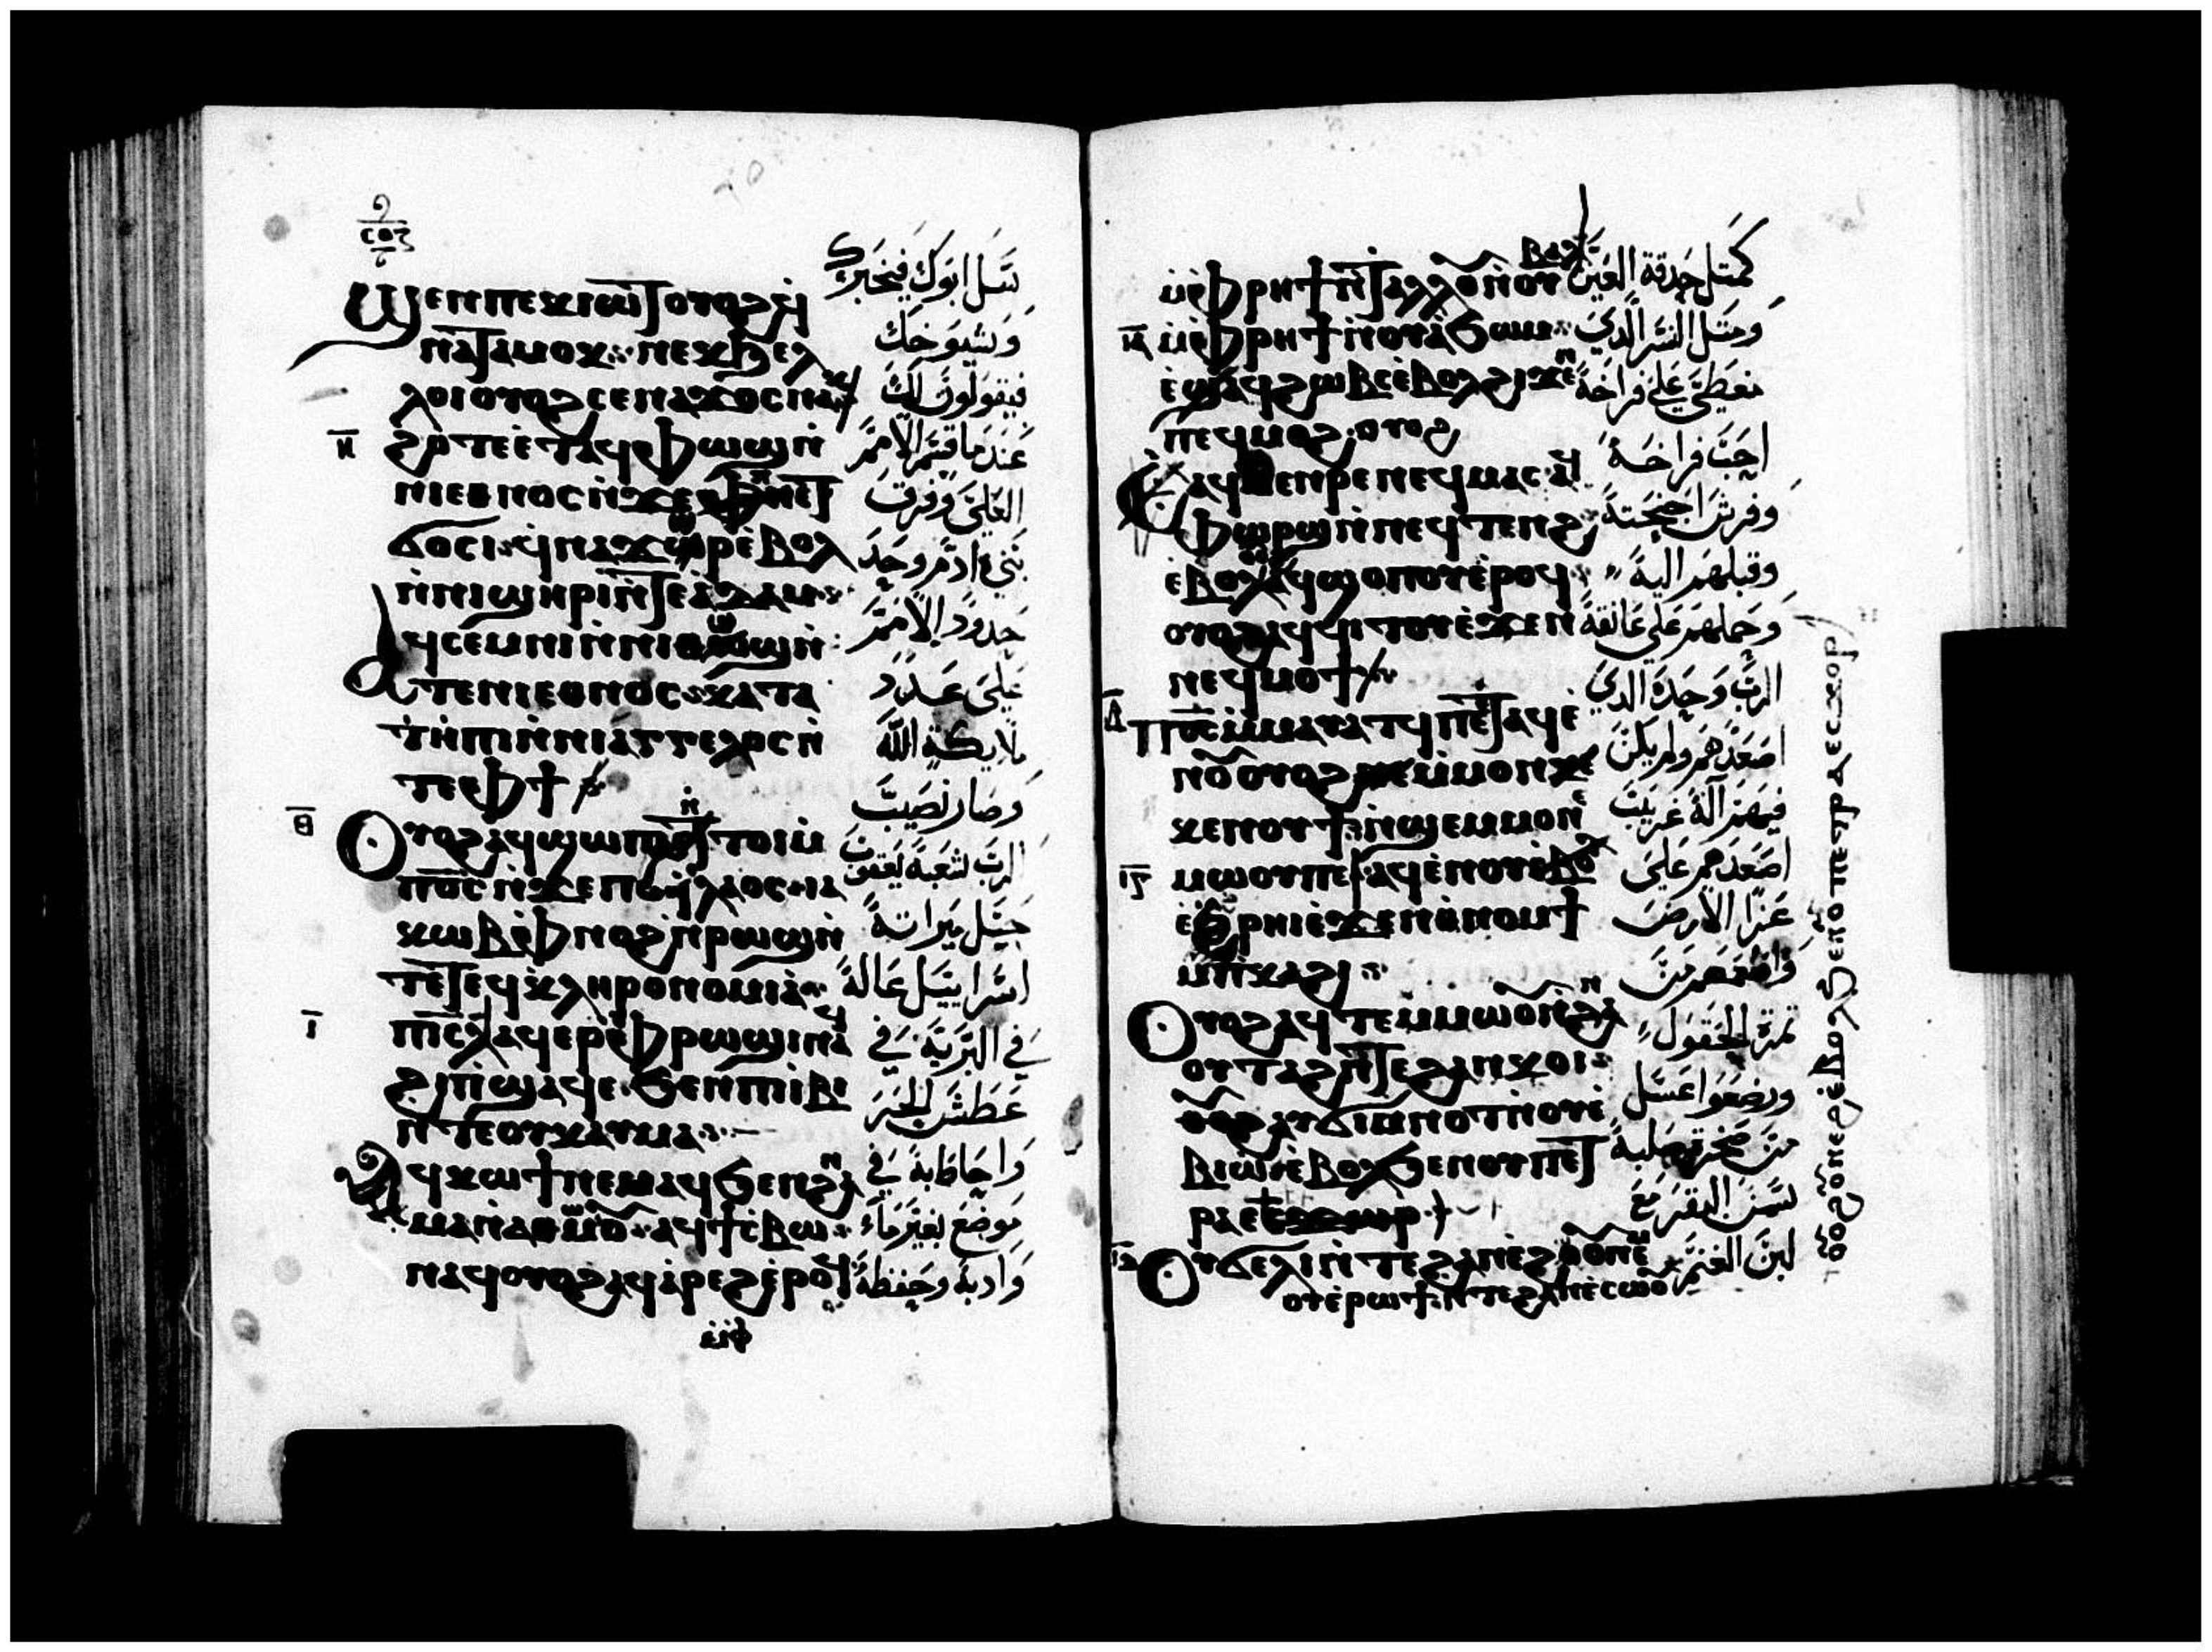 ⲥⲟⲍ
ϣⲉⲛ ⲡⲉⲕⲓⲱⲧ ⲟⲩⲟϩ
ⲛⲁⲧⲁⲙⲟⲕ ⲛⲉⲕϧⲉⲗ
ⲗⲟⲓ ⲟⲩⲟϩ ⲥⲉⲛⲁϫⲟⲥ ⲛⲁⲕ
ⲏ
ϩⲟⲧⲉ ⲉⲧⲁϥⲫⲱϣ ⲛ
ⲛⲓⲉⲑⲛⲟⲥ ⲛϫⲉ ⲫⲏ ⲉⲧ
ϭⲟⲥⲓ ⲉⲃⲟⲗ
ⲛⲛⲓϣⲏⲣⲓ ⲛⲧⲉ ⲁⲇⲁⲙ
ⲁϥⲥⲉⲙⲛⲓ ⲛⲛⲓⲑⲱϣ ⲛ
ⲧⲉ ⲛⲓⲉⲑⲛⲟⲥ ⲕⲁⲧⲁ
ⲧⲏⲡⲓ ⲛⲛⲓⲁⲅⲅⲉⲗⲟⲥ ⲛ
ⲧⲉ ⲫϯ
ⲑ
ⲟⲩⲟϩ ⲁϥϣⲱⲡⲓ ⲛⲧⲟⲓ ⲙ
ⲡⲟⲥ ⲛϫⲉ ⲡⲉϥⲗⲁⲟⲥ ⲓⲁ
ⲕⲱⲃ ⲫⲛⲟϩ ⲛⲣⲱϣ ⲛ
ⲧⲉ ⲧⲉϥⲕⲗⲏⲣⲟⲛⲟⲙⲓⲁ
ⲓ
ⲡⲓⲥⲗ ⲁϥⲉⲣ ⲉⲫⲣⲱϣⲓ ⲛⲁϥ
ϩⲓ ⲡϣⲁϥⲉ ϧⲉⲛ ⲡⲓⲃⲓ
ⲛⲧⲉ ⲟⲩⲕⲁⲩⲙⲁ
ⲁϥⲕⲱϯ ⲛⲉⲙⲁϥ ϧⲉⲛ ϩⲁⲛ
ⲙⲁ ⲛⲁⲑⲙⲱⲟⲩ ⲁϥϯⲥⲃⲱ
ⲛⲁϥ ⲟⲩⲟϩ ⲁϥⲁⲣⲉϩ ⲉⲣⲟϥ
ⲙⲫ
سل ابوك فيخبرك
وشيوخك
فيقولون لك
عندما قسم الامم
العلي وفرق
بني ادم وحد
حدود الامم
علي عدد
ملايكة الله
وصار نصيب
الرب لشعبه يعقوب
حبل ميراته
اسراييل عاله
في البرية في
عطش الحر
واحاط به في
موضع بغير ماء
وادبه وحفظه
ⲙⲫⲣⲏϯ ⲛⲧⲁⲗⲗⲟⲩ ⲛⲟⲩⲃⲁⲗ
ⲓⲁ
ⲙⲫⲣⲏϯ ⲛⲟⲩⲁϧⲱⲙ
ⲉϣⲁϥϩⲱⲃⲥ ⲉⲃⲟⲗ ϩⲓϫⲉⲛ
ⲡⲉϥⲙⲟϩ ⲟⲩⲟϩ
ⲁϥⲙⲉⲛⲣⲉ ⲛⲉϥⲙⲁⲥ ⲁϥ
ⲫⲱⲣϣ ⲛⲛⲉϥⲧⲉⲛϩ
ⲉⲃⲟⲗ ⲁϥϣⲟⲡⲟⲩ ⲉⲣⲟϥ
ⲟⲩⲟϩ ⲁϥϥⲓⲧⲟⲩ ⲉϫⲉⲛ
ⲛⲉϥⲙⲟϯ
ⲡⲟⲥ ⲙⲙⲁⲩⲁⲧϥ ⲡⲉⲧⲁϥⲉ
ⲛⲟⲩ ⲟⲩⲟϩ ⲛⲉ ⲙⲙⲟⲛ
ⲕⲉⲛⲟⲩϯ ⲛϣⲉⲙⲙⲟ ⲛⲉ
ⲓⲅ
ⲙⲱⲟⲩ ⲡⲉ ⲁϥⲉⲛⲟⲩ
ⲉϩⲣⲏⲓ ⲉϫⲉⲛ ⲑⲛⲟⲙϯ
ⲙⲡⲕⲁϩⲓ
ⲟⲩⲟϩ ⲁϥⲧⲉⲙⲙⲱⲟⲩ ⲛϩⲁⲛ
ⲟⲩⲧⲁϩ ⲛⲧⲉ ϩⲁⲛⲕⲟⲓ
ⲟⲩⲟϩ ⲁⲩϭⲓ ⲛⲟⲩⲉ
ⲃⲓⲱ ⲉⲃⲟⲗ ϧⲉⲛ ⲟⲩⲡⲉⲧ
ⲣⲁ
ⲟⲩϭⲉⲗⲓ ⲛⲧⲉ ϩⲁⲛⲉϩⲱⲟⲩ ⲛⲉⲙ
ⲟⲩⲉⲣⲱϯ ⲛⲧⲉ ϩⲁⲛⲉⲥⲱⲟⲩ
كمتل حدقة العين
ومتل النسر الدي
يغطي علي فراخه
احب فراخه
وفرش اجنحته
وقبلهم اليه
وحملهم علي عاتقه
الرب وحده الدي
اصعدهم ولم يكن
فيهم اله غريب
اصعدهم علي
عز الارض
واطعمهم من
تمرة الحقول
ورضعوا عسل
من صخرة صلبة
سمن البقر مع
لبن الغنم
ⲟⲩⲟϩ ⲟⲩⲛⲉϩ ⲉⲃⲟⲗ ϧⲉⲛ ⲟⲩⲡⲉⲧⲣⲁ ⲉⲥϫⲟⲣ